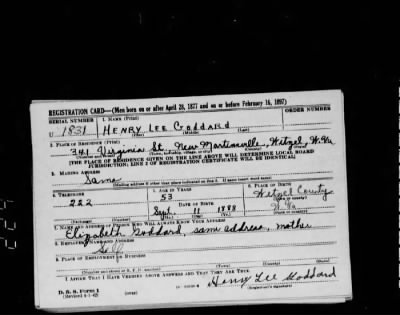 REGISTRATION CARD—(Men born on or after April 28, 1877 and on or before February 16, 1897)
SERIAL NUMBER 1. NAME (Print) ORDER NUMBER
U 1831 HENRY LEE GODDARD
(First) (Middle) (Last)
2. PLACE OF RESIDENCE (Print)
341 Virginia St. New Martinsville, Wetzel, W.Va
(THE PLACE OF RESIDENCE GIVEN ON THE LINE ABOVE WILL DETERMINE LOCAL BOARD
JURISDICTION; LINE 2 OF REGISTRATION CERTIFICATE WILL BE IDENTICAL)
3. MAILING ADDRESS
Same
[Mailing address if other than place indicated on line 2. If same insert word same]
4. TELEPHONE 5. AGE IN YEARS 6. PLACE OF BIRTH
222 53 Wetzel County
DATE OF BIRTH
Sept. 11 1888 W.Va
(Exchange) (Number) (Mo.) (Day) (Yr.)
7. NAME AND ADDRESS OF PERSON WHO WILL ALWAYS KNOW YOUR ADDRESS
Elizabeth Goddard, same address, mother
8. EMPLOYER'S NAME AND ADDRESS
Self
9. PLACE OF EMPLOYMENT OR BUSINESS
I AFFIRM THAT I HAVE VERIFIED ABOVE ANSWERS AND THAT THEY ARE TRUE.
D. S. S. Form 1
(Revised 4-1-42) (over) Henry Lee Goddard
(Registrant's signature)